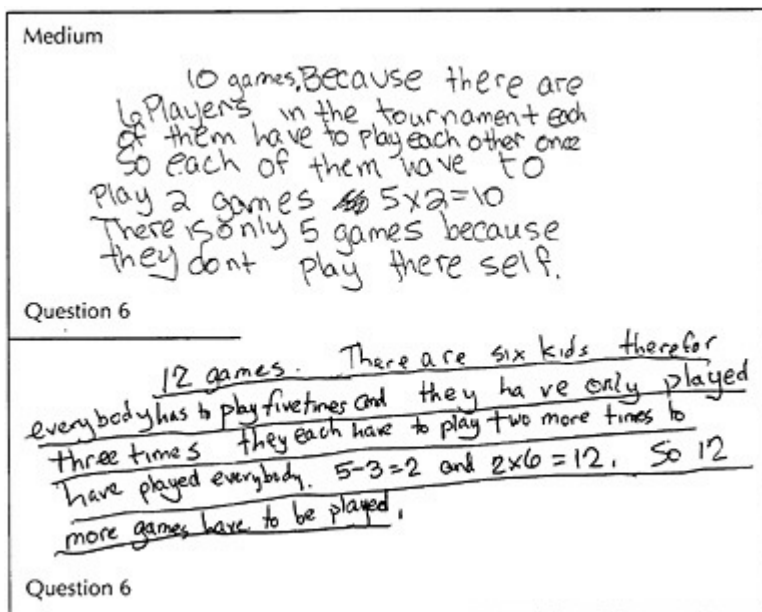 Medium
10 games. Because there are
6 Players in the tournament each
of them have to play each other once
So each of them have to
Play 2 games 5x2=10
There is only 5 games because
they dont play there self.
Question 6
12 games. There are six kids therefor
everybody has to play five times and they have only played
three times they each have to play two more times to
have played everybody. 5-3=2 and 2x6=12. So 12
more games have to be played.
Question 6